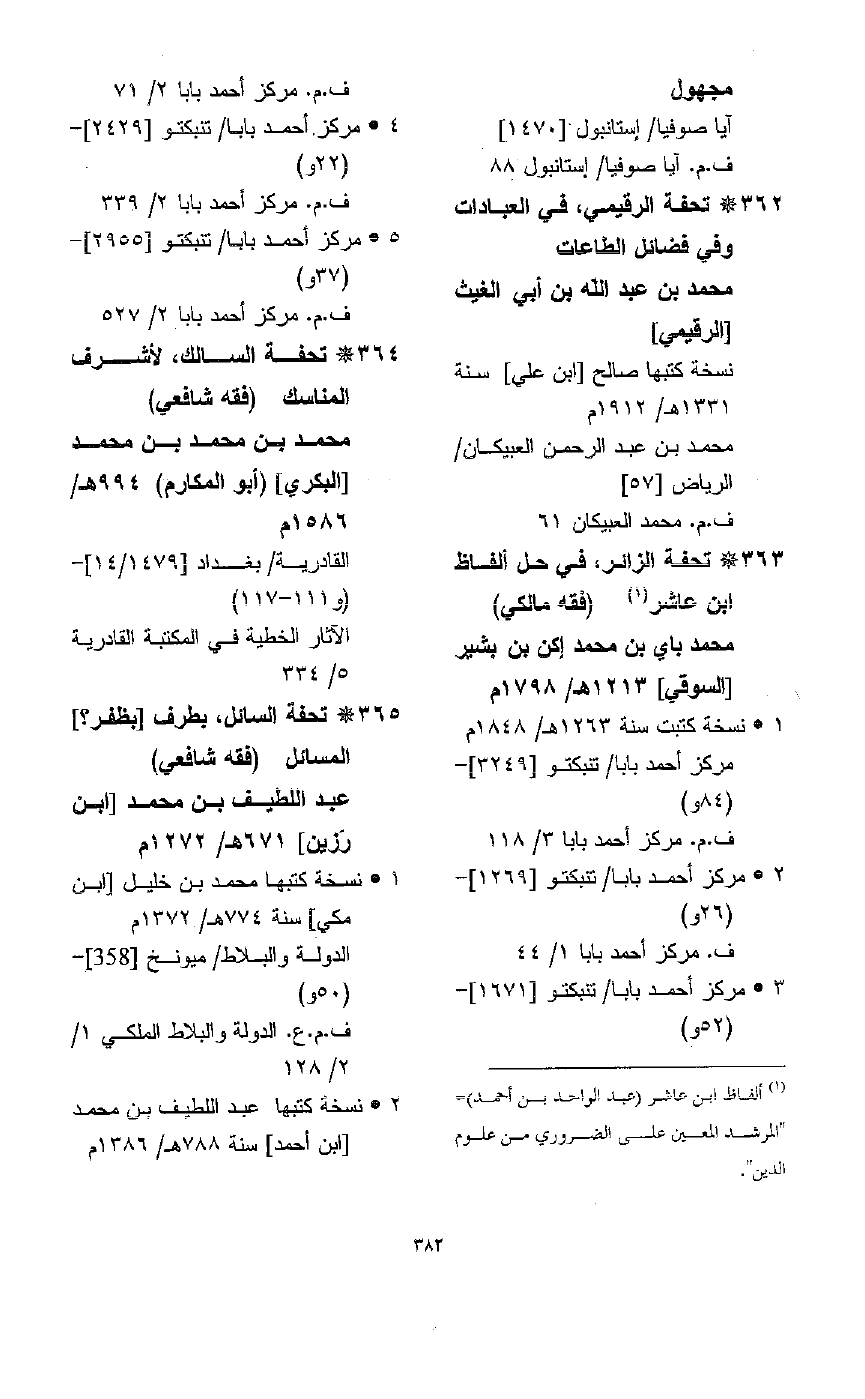 مجهول
آيا صوفيا/ إستانبول [١٤٧٠]
ف.م. آيا صوفيا/ إستانبول ٨٨
٣٦٢* تحفة الرقيمي، في العبادات
وفي فضائل الطاعات
محمد بن عبد الله بن أبي الغيث
[الرقيمي]
نسخة كتبها صالح [ابن علي] سنة
١٣٣١هـ/ ١٩١٢م
محمد بن عبد الرحمن العبيكان/
الرياض [٥٧]
ف.م. محمد العبيكان ٦١
٣٦٣* تحفة الزائر، في حل ألفاظ
ابن عاشر(١) (فقه مالكي)
محمد باي بن محمد إكن بن بشير
[السوقي] ١٢١٣هـ/ ١٧٩٨م
١ * نسخة كتبت سنة ١٢٦٣هـ/ ١٨٤٨م
مركز أحمد بابا/ تنبكتو [٣٢٤٩]-
(٨٤و)
ف.م. مركز أحمد بابا ٣/ ١١٨
٢ * مركز أحمد بابا/ تنبكتو [١٢٦٩]-
(٢٦و)
ف. مركز أحمد بابا ١/ ٤٤
٣ * مركز أحمد بابا/ تنبكتو [١٦٧١]-
(٥٢و)
(١) ألفاظ ابن عاشر (عبد الواحد بن أحمد)=
"المرشد المعين على الضروري من علوم
الدين".
ف.م. مركز أحمد بابا ٢/ ٧١
٤ * مركز أحمد بابا/ تنبكتو [٢٤٢٩]-
(٢٢و)
ف.م. مركز أحمد بابا ٢/ ٣٣٩
٥ * مركز أحمد بابا/ تنبكتو [٢٩٥٥]-
(٣٧و)
ف.م. مركز أحمد بابا ٢/ ٥٢٧
٣٦٤* تحفة السالك، لأشرف
المناسك (فقه شافعي)
محمد بن محمد بن محمد
[البكري] (أبو المكارم) ٩٩٤هـ/
١٥٨٦م
القادرية/ بغداد [١٤/١٤٧٩]-
(و١١١-١١٧)
الآثار الخطية في المكتبة القادرية
٥/ ٣٣٤
٣٦٥* تحفة السائل، بطرف [بظفر؟]
المسائل (فقه شافعي)
عبد اللطيف بن محمد [ابن
رَزين] ٦٧١هـ/ ١٢٧٢م
١ * نسخة كتبها محمد بن خليل [ابن
مكي] سنة ٧٧٤هـ/ ١٣٧٢م
الدولة والبلاط/ ميونخ [358]-
(٥٠و)
ف.م.ع. الدولة والبلاط الملكي ١/
٢/ ١٢٨
٢ * نسخة كتبها عبد اللطيف بن محمد
[ابن أحمد] سنة ٧٨٨هـ/ ١٣٨٦م
٣٨٢